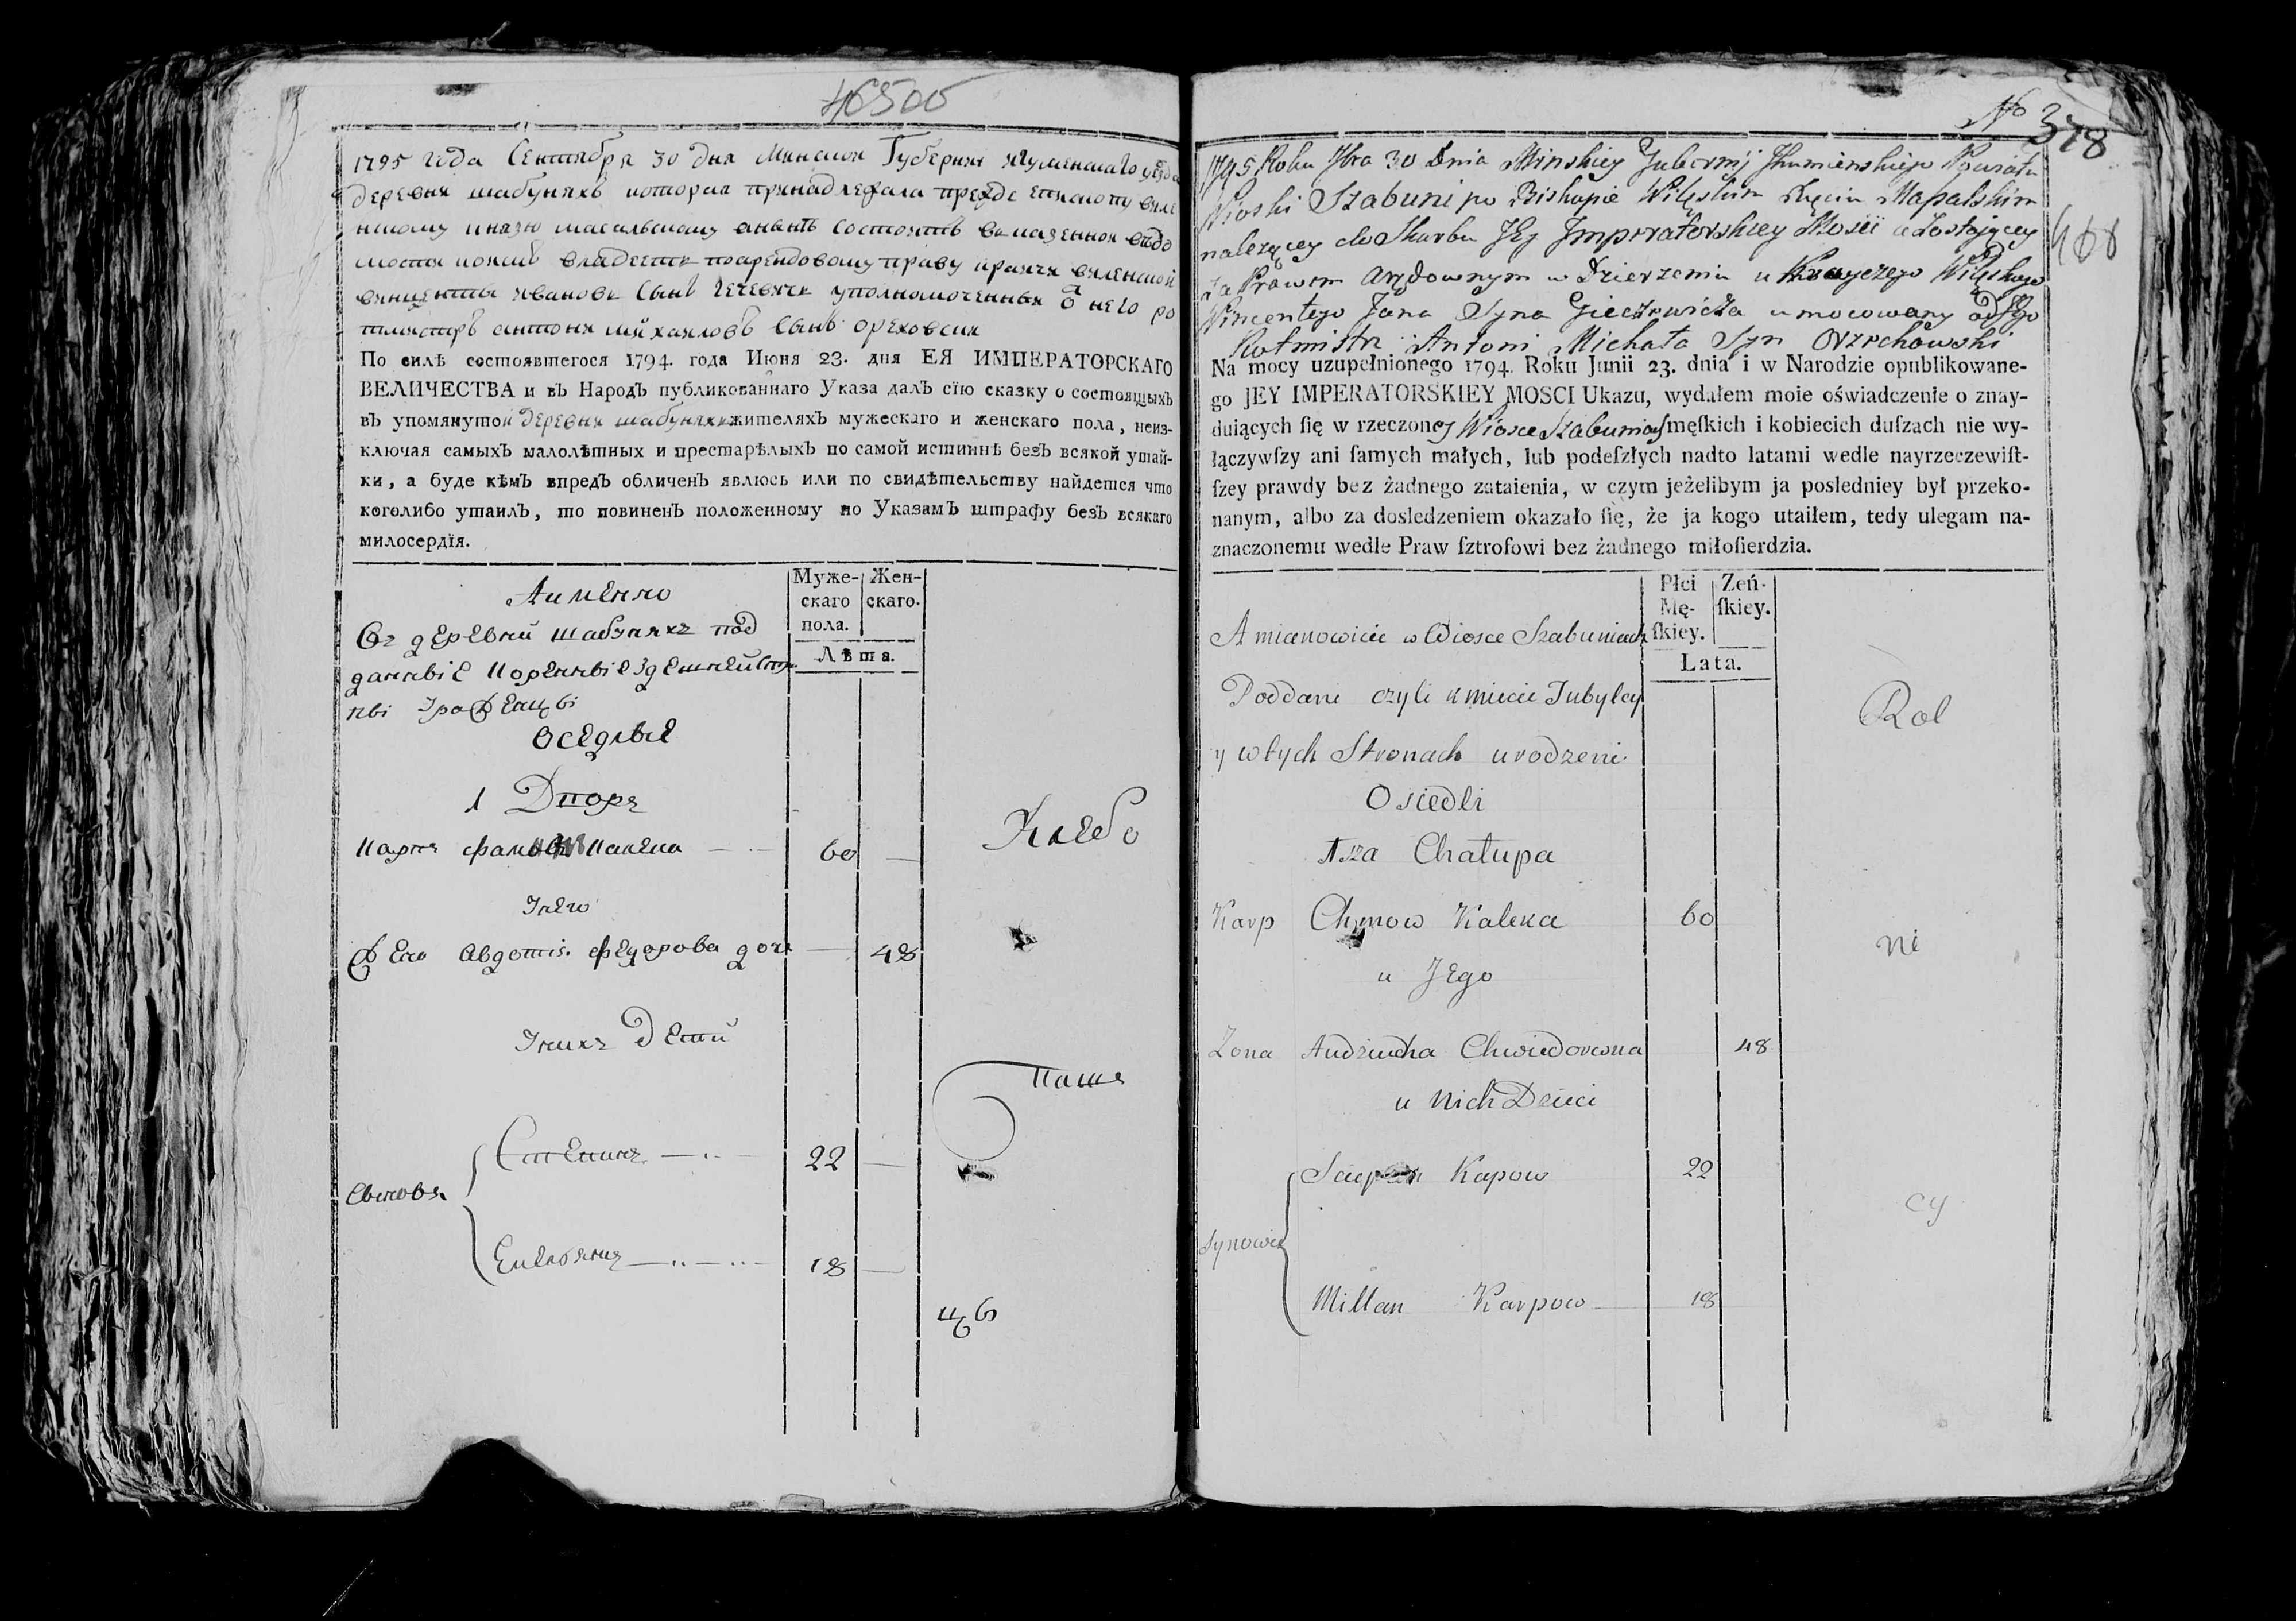 46500
1795 года Сентября 30 дня Минской Губернии Игуменскаго уезда
деревни шабуняхъ которая принадлежала прежде епископу виле
нскому князю масальскому анынѣ состоитъ в казенном ведо
мости коюсь владееть поарендовому праву крайчи виленской
винценты Иванов Сынъ Гечевичь уполномоченный от него ро
тмистръ антони михайловъ Сынъ ореховски
По силѣ состоявшегося 1794. года Июня 23. дня ЕЯ ИМПЕРАТОРСКАГО
ВЕЛИЧЕСТВА и въ НародЪ публикованнаго Указа далЪ сїю сказку о состоящыхЪ
въ упомянутой деревни шабуняхъ жителяхЪ мужескаго и женскаго пола, неиз-
ключая самыхЪ малолѣтных и престарѣлыхЪ по самой истиннѣ безЪ всякой утай-
ки, а буде кѣмЪ впредЪ обличенЪ явлюсь или по свидѣтельству найдется что
коголибо утаилЪ, то повиненЪ положенному по УказамЪ штрафу безЪ всякаго
милосердїя.
Аименно
Муже- Жен-
скаго скаго.
пола.
Лѣта.
Въ деревни шабуняхъ под
данные коренные здешней
Оседлые
1 Дворъ
Карпъ 60
Хлебо
Унего
Жена Авдотія федорова дочь 48
Унихъ Дети
паш
Сыновья
Степанъ 22
Емельянъ 18
цы
No 378
468
1795 Roku 7bra 30 Dnia Minskiey Gubernij Ihumienskiego Powiatu
Wioski Szabuni po Biskupie Wileńskim Xięciu Massalskim
należącey do Skarbu Jey Imperatorskiey Mości a Zostającey
za Prawem Arędownym w Dzierżeniu u Krayczego Wileńskiego
Wincentego Jana Syna Gieczewicza umocowany od Jego
Rotmistr Antoni Michała Syn Orzechowski
Na mocy uzupełnionego 1794. Roku Junii 23. dnia i w Narodzie opublikowane-
go JEY IMPERATORSKIEY MOSCI Ukazu, wydałem moie oświadczenie o znay-
duiących ſię w rzeczoney Wiosce Szabuniach męſkich i kobiecich duſzach nie wy-
łączywſzy ani ſamych małych, lub podeſzłych nadto latami wedle nayrzeczewiſt-
ſzey prawdy bez żadnego zataienia, w czym jeżelibym ja posledniey był przeko-
nanym, albo za dosledzeniem okazało ſię, że ja kogo utaiłem, tedy ulegam na-
znaczonemu wedle Praw ſztrofowi bez żadnego miłoſierdzia.
Płci Zeń-
Mę- ſkiey.
ſkiey.
Lata.
A mianowicie w Wiosce Szabuniach
Poddani czyli kmiecie Tubylcy
y w tych Stronach urodzeni
Rol
Osiedli
1sza Chałupa
Karp Chymow Kaleka 60
ni
u Jego
Zona Audziucha Chwiedorowna 48
u Nich Dzieci
Synowie
Sciepan Kapow 22
cy
Millan Karpow 18